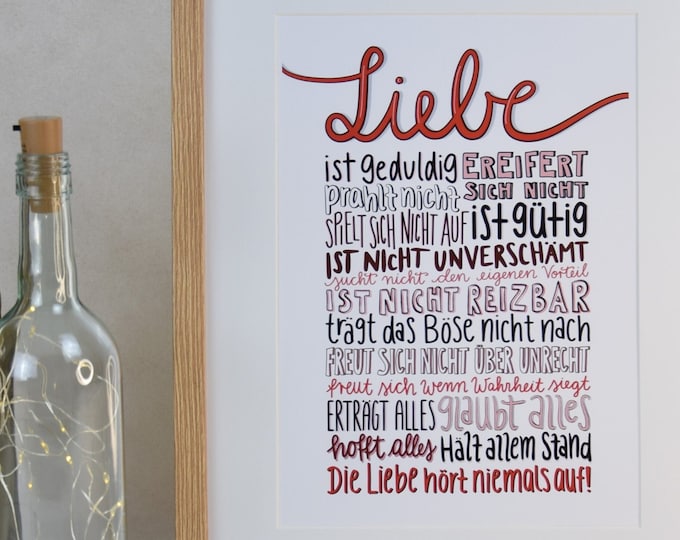 Liebe
ist geduldig EREIFERT
prahlt nicht SICH NICHT
SPIELT SICH NICHT AUF ist gütig
IST NICHT UNVERSCHÄMT
sucht nicht den eigenen Vorteil
IST NICHT REIZBAR
trägt das Böse nicht nach
FREUT SICH NICHT ÜBER UNRECHT
freut sich wenn Wahrheit siegt
ERTRÄGT ALLES glaubt alles
hofft alles Hält allem Stand
Die Liebe hört niemals auf!